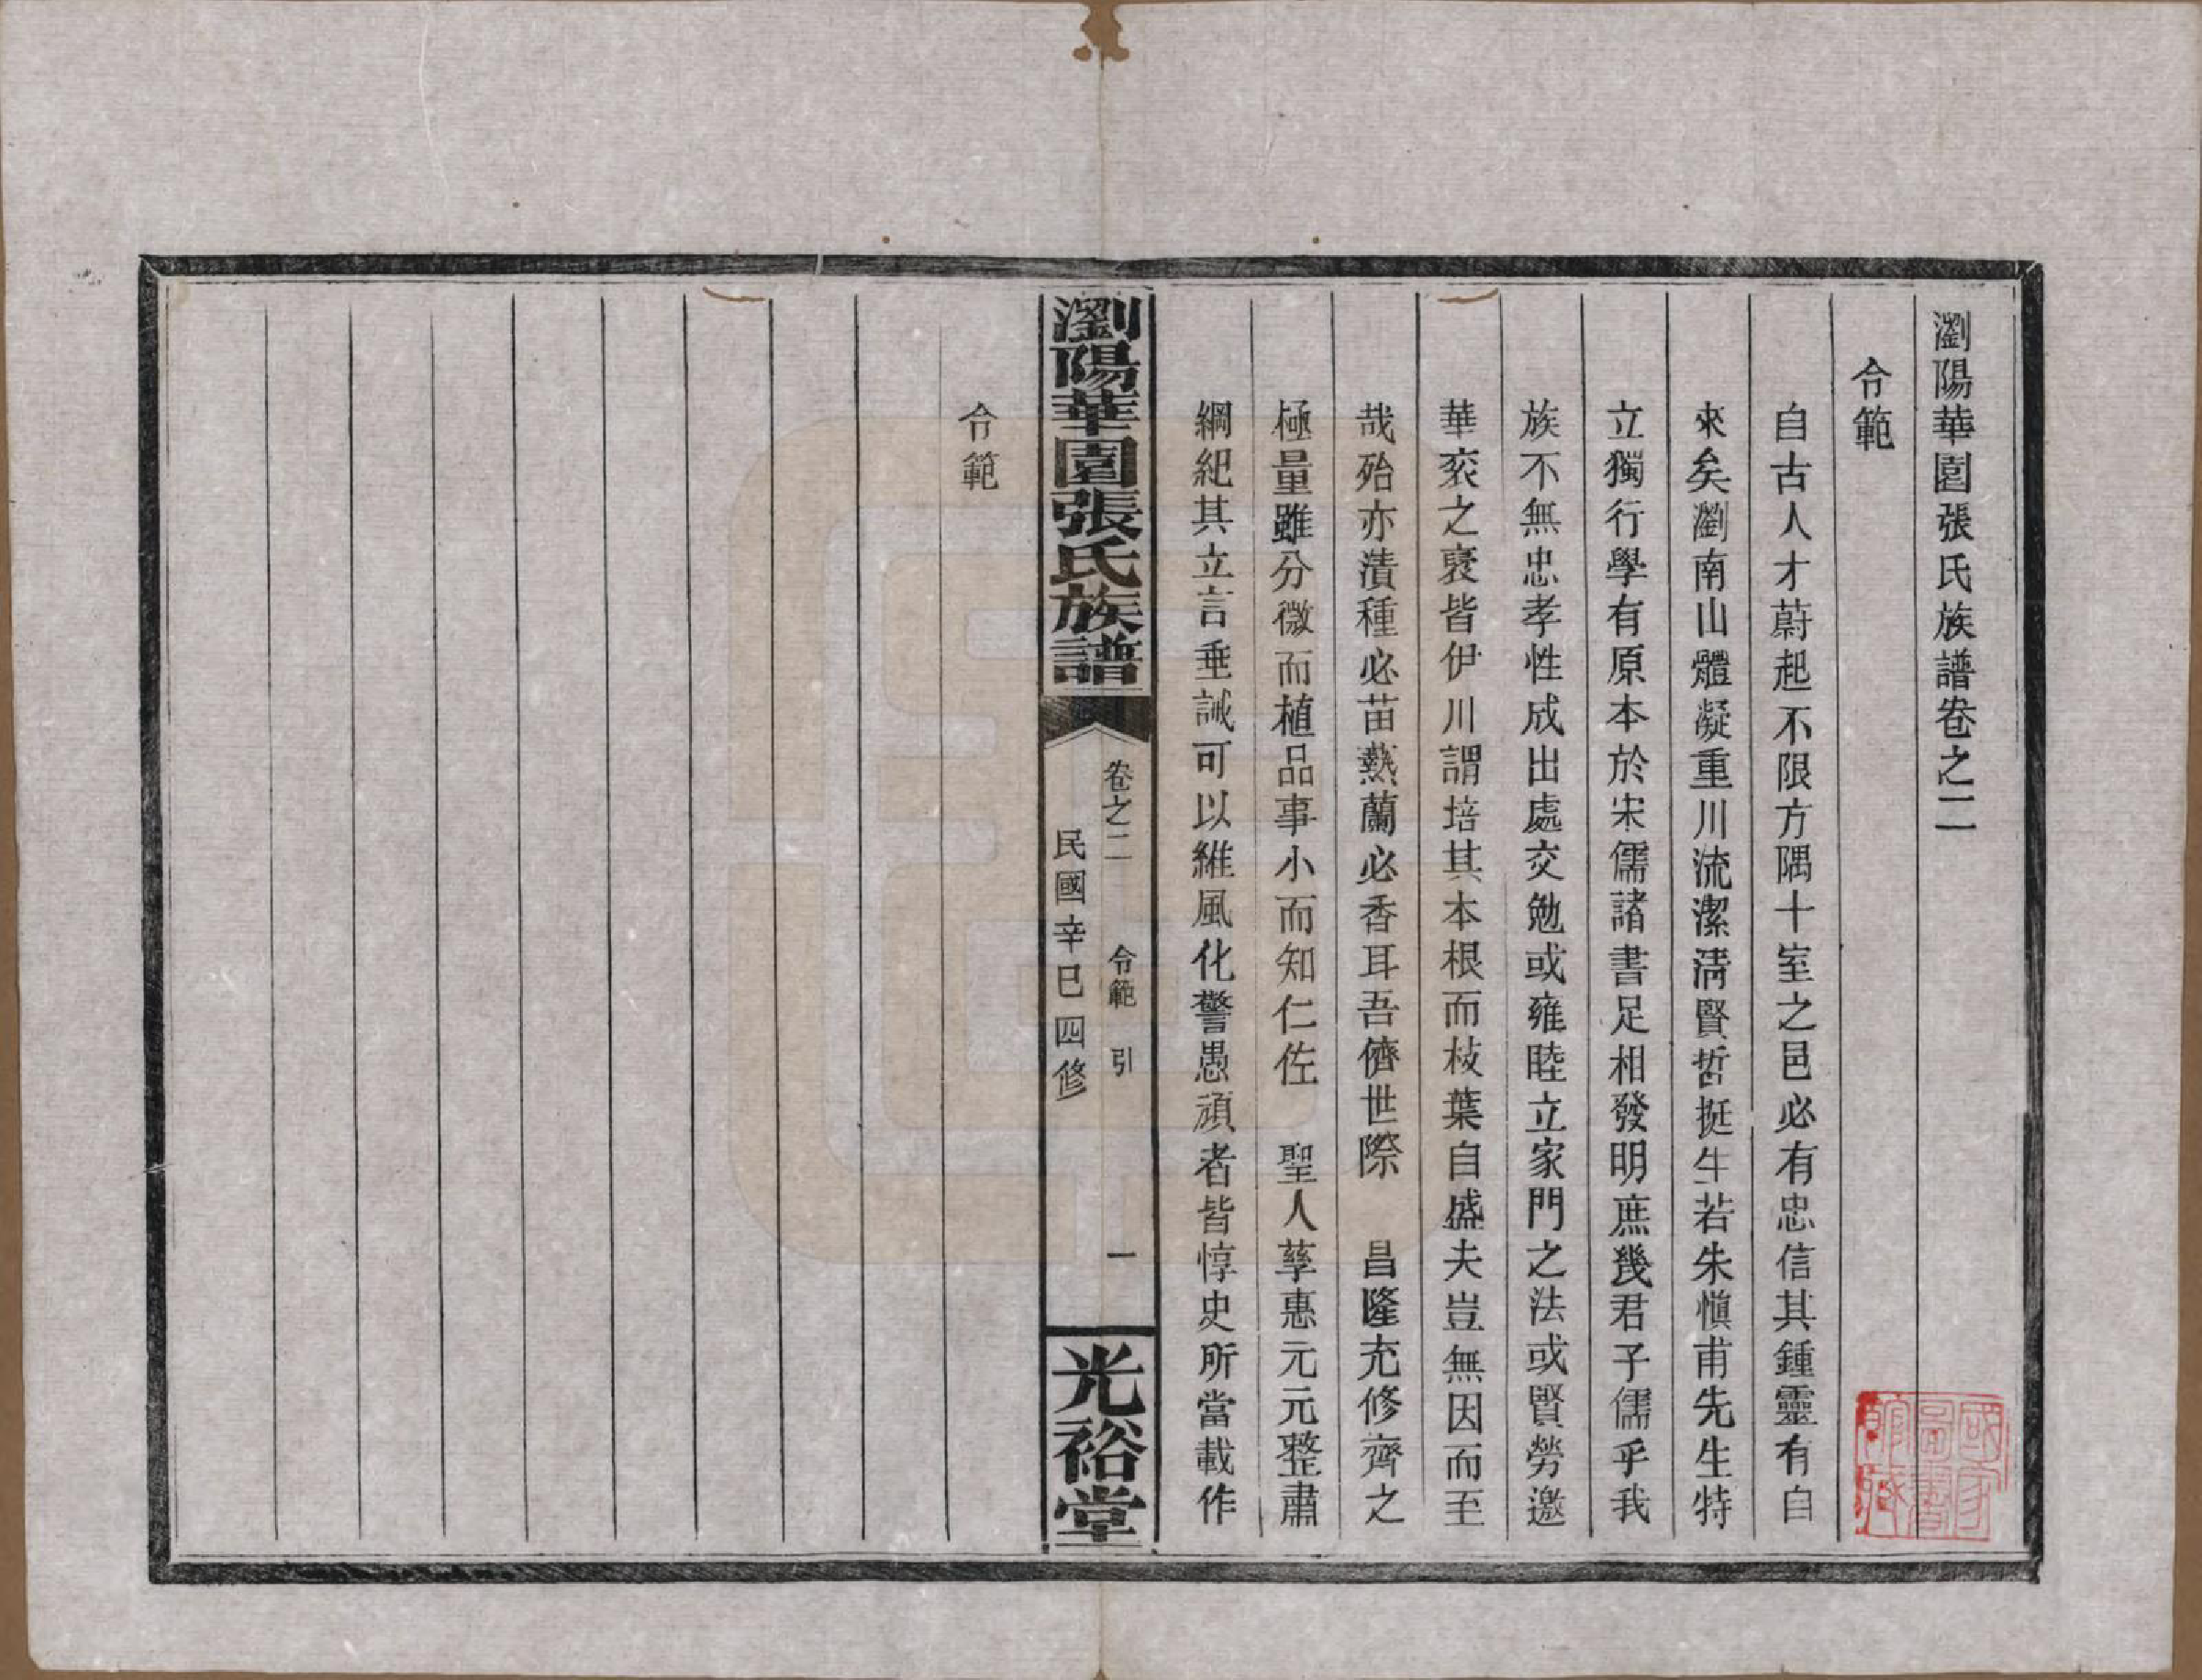 瀏陽華園張氏族譜卷之二
令範
自古人才蔚起不限方隅十室之邑必有忠信其鍾靈有自
來矣瀏南山體凝重川流潔淸賢哲挺生若朱愼甫先生特
立獨行學有原本於宋儒諸書足相發明庶幾君子儒乎我
族不無忠孝性成出處交勉或雍睦立家門之法或賢勞邀
華衮之褒皆伊川謂培其本根而枝葉自盛夫豈無因而至
哉殆亦漬種必苗爇蘭必香耳吾儕世際　昌隆充修齊之
極量雖分微而植品事小而知仁佐　聖人孳惠元元整肅
綱紀其立言垂誡可以維風化警愚頑者皆惇史所當載作
瀏陽華園張氏族譜
卷之二　令範　引　一
民國辛巳四修
光裕堂
令範
國家圖書館藏